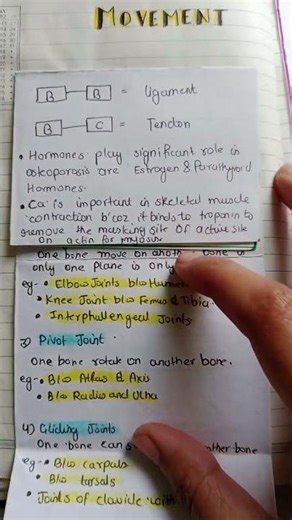 MOVEMENT
B B = ligament
B C = Tendon
• Hormones play significant role in
oskoporosis are Estrogen & Parathyroid
Hormones.
• Ca is important in skeletal muscle
contraction b'coz it binds to troponin to
remove the masking site of active site
on actin for myosin.
One bone move on anoth bone
only one plane is only
eg - • Elbow Joints b/w Humer
• Knee Joint b/w Femur & Tibia
• Interphallengeal Joints
3) Pivot Joint
One bone rotate on another bone.
eg - • B/w Atlas & Axis
• B/w Radius and Ulna
4) Gliding Joints
One bone can s other bone
eg - • B/w carpals
• B/w tarsals
• Joints of clavicle with